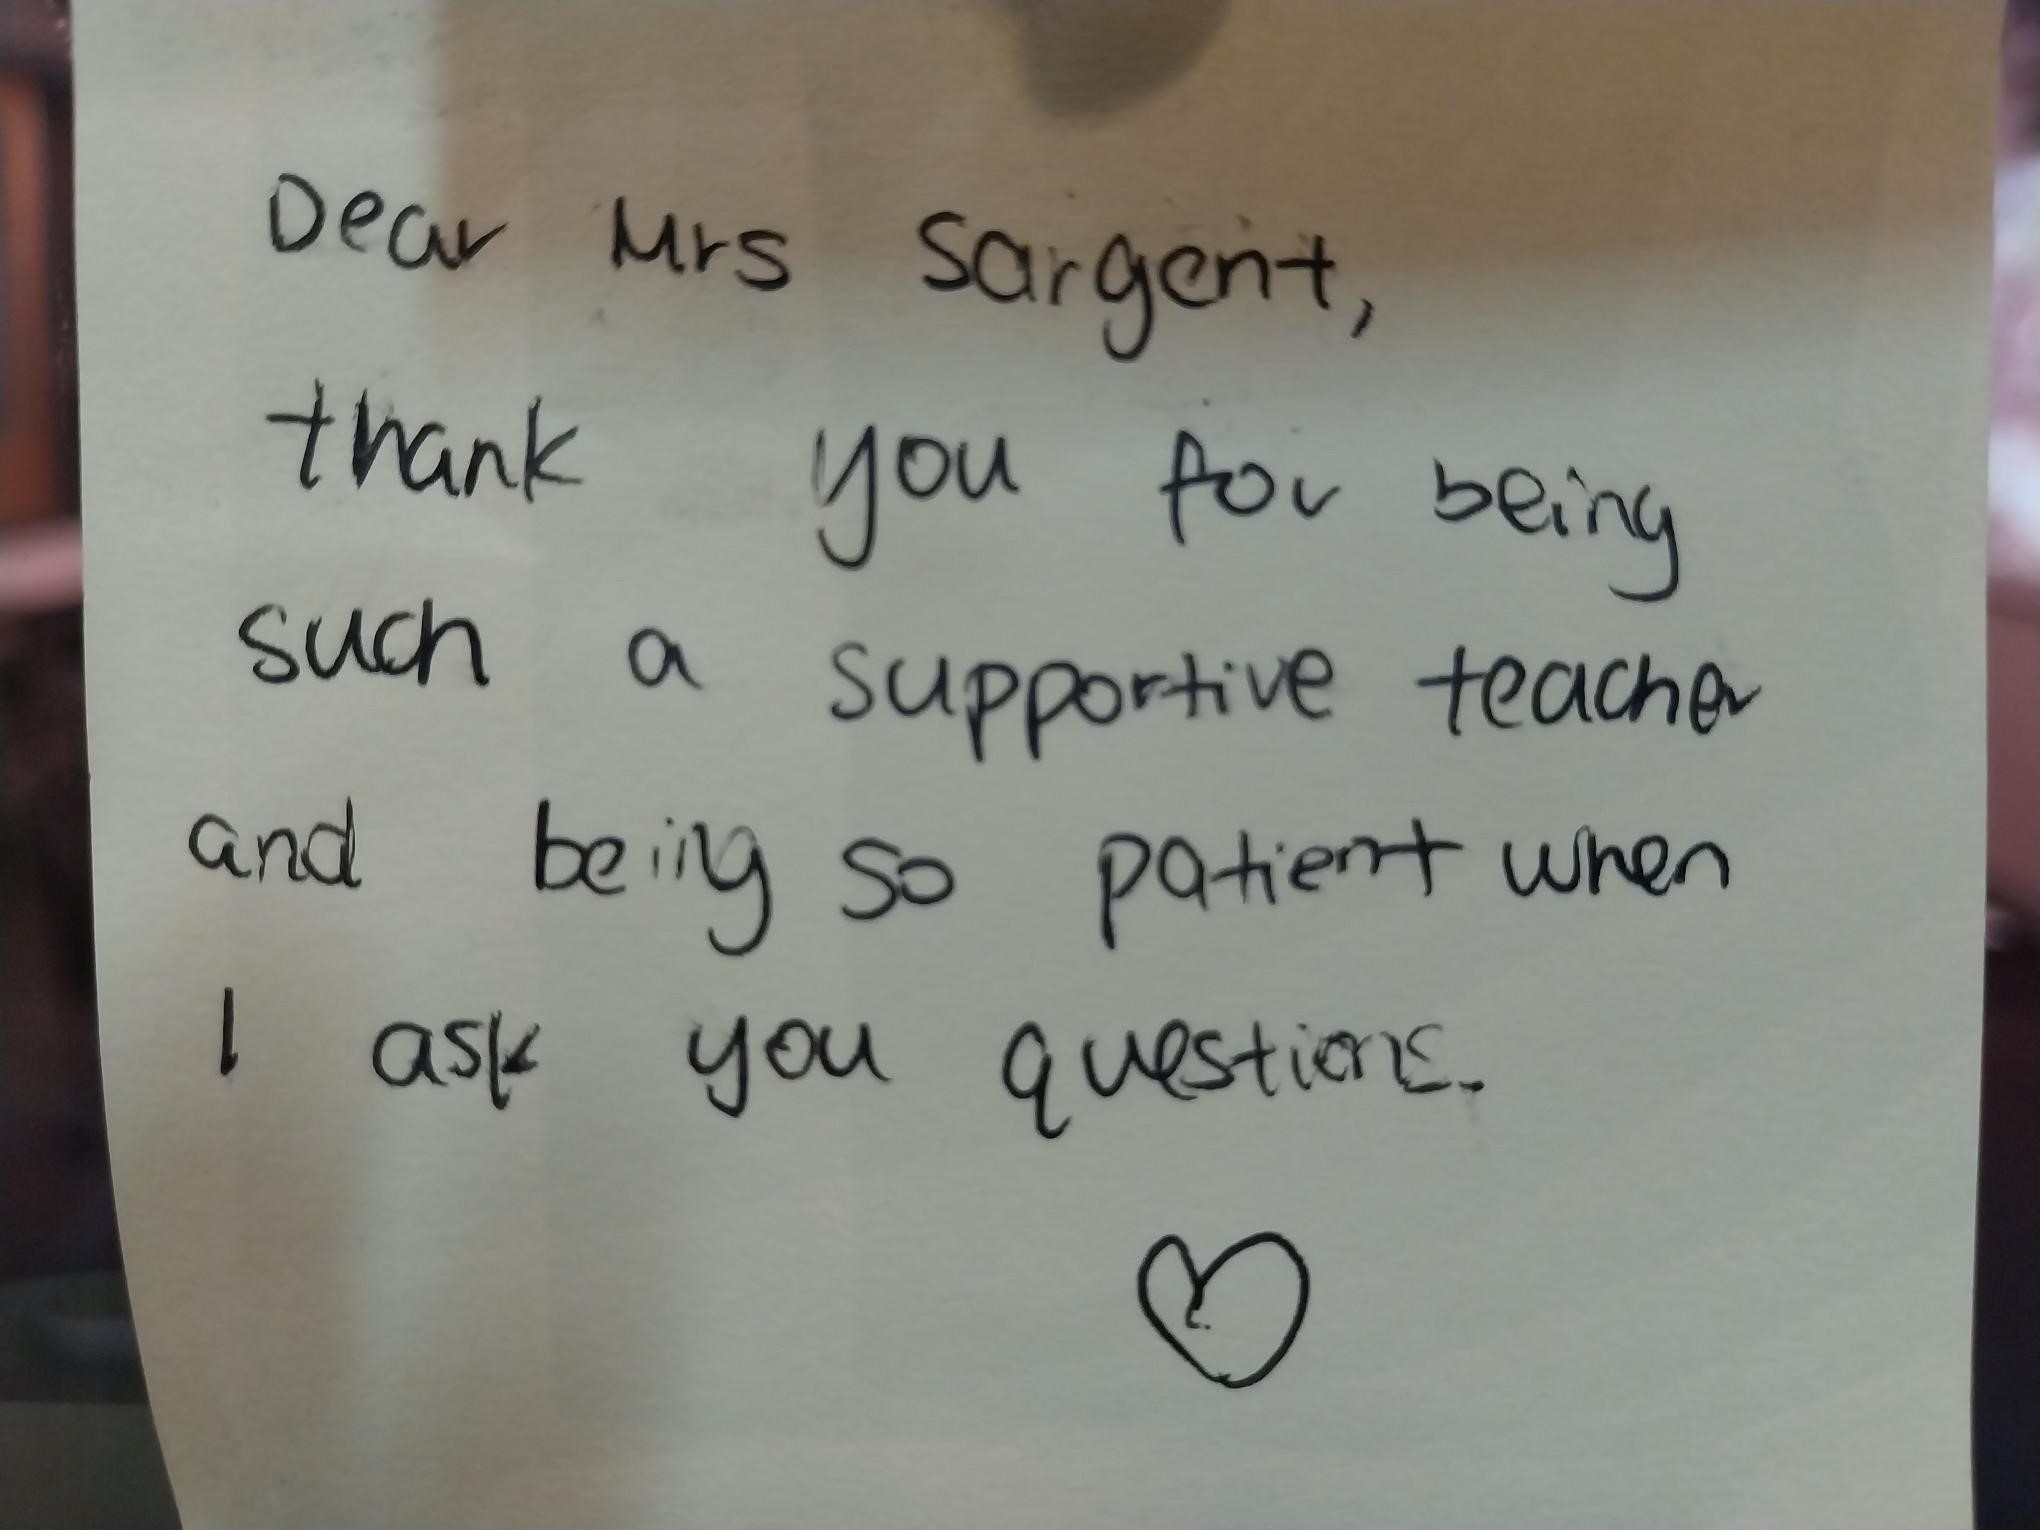 Dear Mrs Sargent,
thank you for being
such a supportive teacher
and being so patient when
I ask you questions.